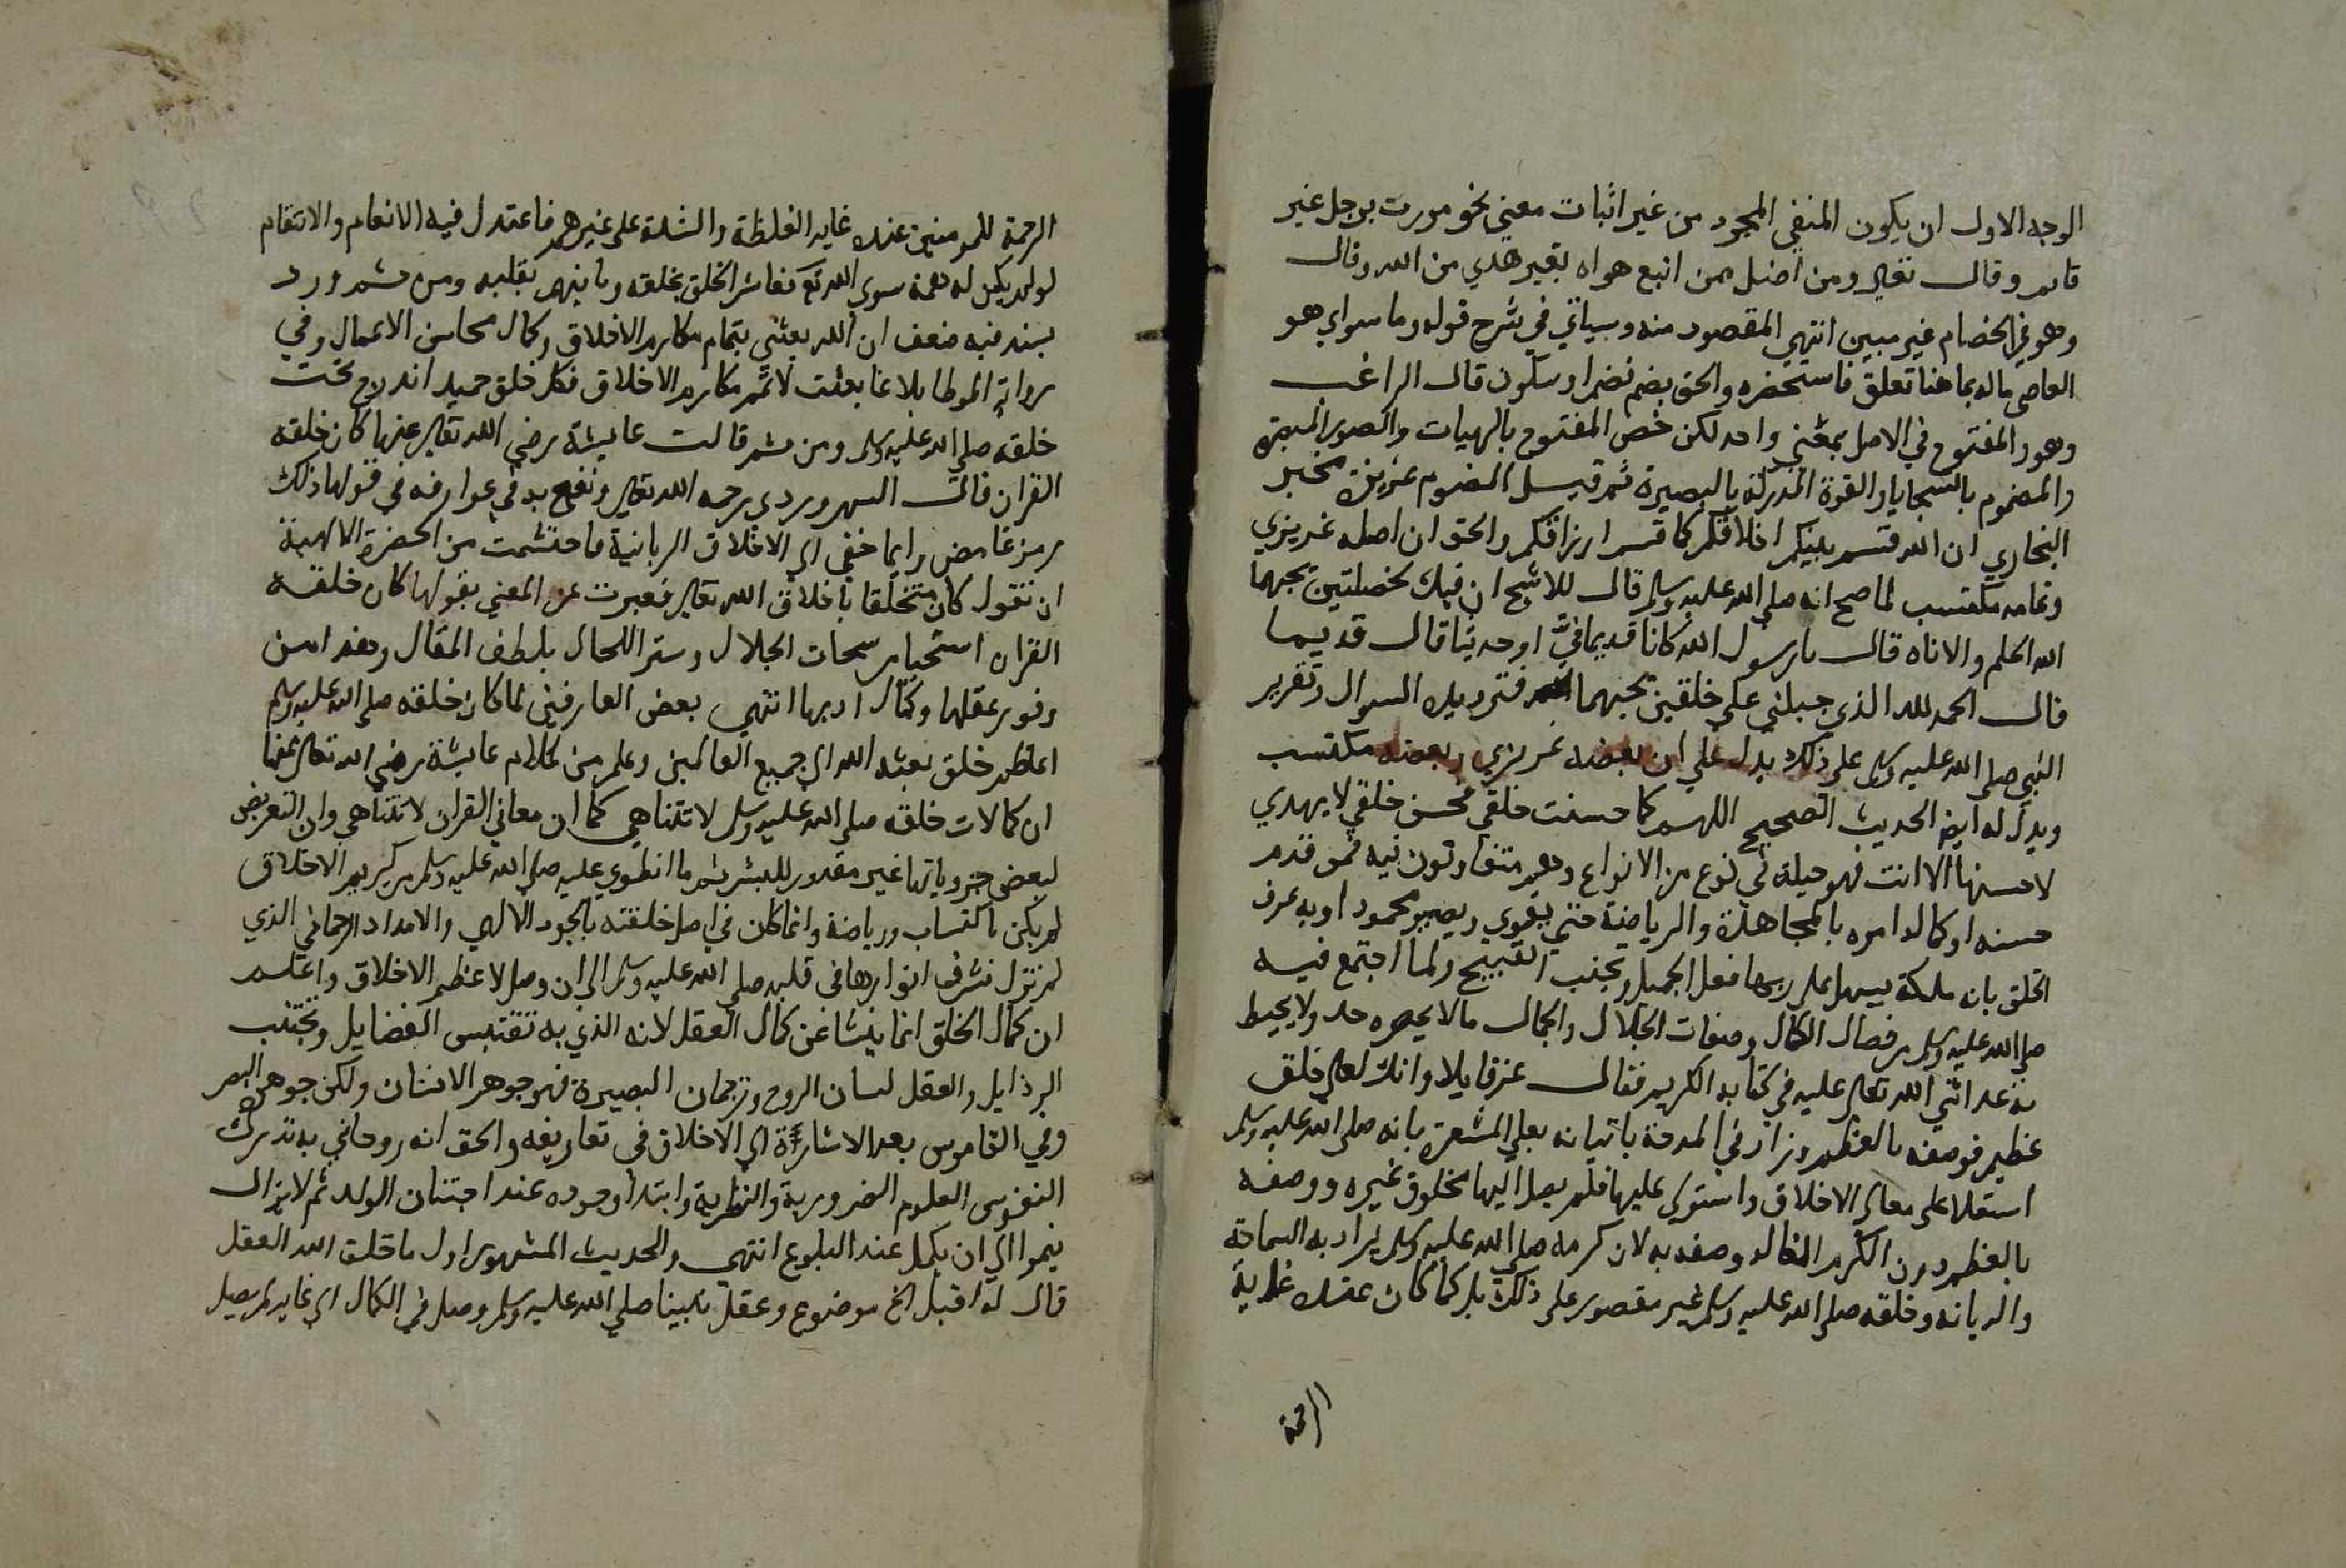 الوجه الاول ان يكون المنفي المجرد من غير اثبات معني نحو مررت برجل غير
قايم وقال تعالي ومن اضل ممن اتبع هواه بغير هدي من الله وقال
وهو في الخصام غير مبين انتهي المقصود منه وسياتي في شرح قوله وما سواي هو
العاصي ماله بما هنا تعلق فاستحضره والخلق بضم فضم او سكون قال الراغب
وهو والمفتوح في الاصل بمعني واحد لكن خص المفتوح بالهيات والصور المبصرة
والمضموم بالسجايا والقوة المدركة بالبصيرة ثم قيل المضموم غريزة لخبر
البخاري ان الله قسم بينكم اخلاقكم كما قسم ارزاقكم والحق ان اصله غريزي
وتمامه مكتسب لما صح انه صلي الله عليه وسلم قال للاشج ان فيك لخصلتين يحبهما
الله الحلم والاناه قال يارسول الله كانا قديما فيَّ او حديثا قال قديما
قال الحمد لله الذي جبلني علي خلقين يحبهما فترديده السوال وتقرير
النبي صلي الله عليه وسلم علي ذلك يدل علي ان بعضه غريزي وبعضه مكتسب
ويدل له ايض الحديث الصحيح اللهم كما حسنت خلقي فحسن خلقي لا يهدي
لاحسنها الا انت فهو جبلة في نوع من الانواع وهم متفاوتون فيه فمن قدم
حسنه او كماله امره بالمجاهدة والرياضة حتي يقوي ويصير محمودا وبه عرف
الخلق بانه ملكة يسهل علي ربها فعل الجميل وتجنب القبيح ولما اجتمع فيه
صلي الله عليه وسلم من خصال الكمال وصفات الجلال والجمال مالا يحصره حد ولا يحيط
به عد اثني الله تعالي عليه في كتابه الكريم فقال عز قايلا وانك لعلي خلق
عظيم فوصفه بالعظم وزاد في المدحة باتيانه بعلي المشعرة بانه صلي الله عليه وسلم
استعلا علي معالي الاخلاق واستولي عليها فلم يصل اليها مخلوق غيره ووصفه
بالعظم دون الكرم الغالب وصفه به لان كرمه صلي الله عليه وسلم يراد به السماحة
والديانه وخلقه صلي الله عليه وسلم غير مقصور علي ذلك بل كما كان عنده غاية
الرحمة
الرحمة للمومنين عنده غاية الغلظة والشدة علي غيرهم فاعتدل فيه الانعام والانتقام
لو لم يكن له همة سوي الله تع فعاشر الخلق بخلقه وباينهم بقلبه ومن ثم ورد
بسند فيه ضعف ان الله بعثني بتمام مكارم الاخلاق وكمال محاسن الاعمال وفي
رواية الموطا بلاغا بعثت لاتمم مكارم الاخلاق فكل خلق حميد اندرج تحت
خلقه صلي الله عليه وسلم ومن ثم قالت عايشة رضي الله تعالي عنها كان خلقه
القران قال السهروردي رحمه الله تعالي ونفع به في عوارفه في قولها ذلك
رمز غامض وايما خفي الي الاخلاق الربانية فاحتشمت من الحضرة الالهية
ان تقول كان متخلقا باخلاق الله تعالي فعبرت عن المعني بقولها كان خلقه
القران استحيا من سبحات الجلال وستر اللحال بلطف المقال وهذا من
وفور عقلها وكمال ادبها انتهي بعض العارفين لما كان خلقه صلي الله عليه وسلم
اعظم خلق بعثه الله الي جميع العالمين وعلم من كلام عايشة رضي الله تعالي عنها
ان كمالات خلقه صلي الله عليه وسلم لا تتناهي كما ان معاني القران لا تتناهي وان التعرض
لبعض جزوياتها غير مقدور للبشر ثم ما انطوي عليه صلي الله عليه وسلم من كريم الاخلاق
لم يكن باكتساب ورياضة وانما كان في اصل خلقته بالجود الالهي والامداد الرحماني الذي
لم تزل تشرق انوارها في قلبه صلي الله عليه وسلم الي ان وصل لاعظم الاخلاق واعلم
ان كمال الخلق انما ينشا عن كمال العقل لانه الذي به تقتبس الفضايل وتجتنب
الرذايل والعقل لسان الروح وترجمان البصيرة فهو جوهر الانسان ولكن جوهره البصر
وفي القاموس بعد الاشارة الي الاخلاق في تعاريفه والحق انه روحاني به تدرك
النفوس العلوم الضرورية والنظرية وابتدا وجوده عند اجتنان الولد ثم لا يزال
ينموا الي ان يكمل عند البلوغ انتهي والحديث المشهور اول ما خلق الله العقل
قال له اقبل الخ موضوع وعقل نبينا صلي الله عليه وسلم وصل في الكمال الي غايه لم يصل